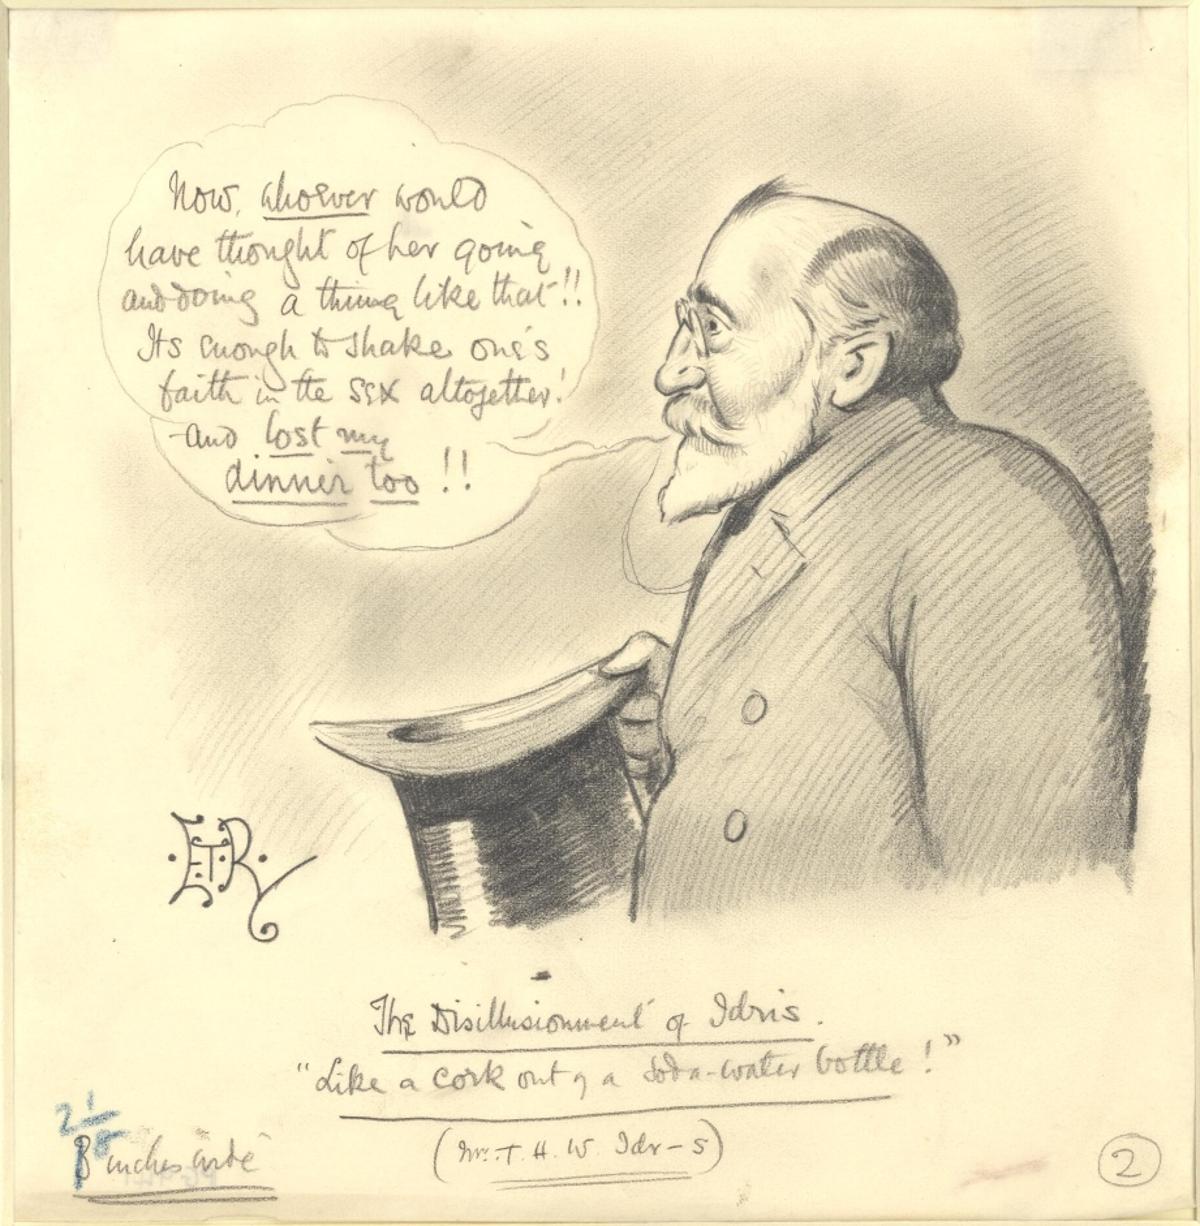 Now, whoever would
have thought of her going
and doing a thing like that!!
Its enough to shake one's
faith in the sex altogether!
- and lost my
dinner too!!
E.T.R.
The Disillusionment of Idris.
"Like a cork out of a soda-water bottle!"
(Mr. T. H. W. Idr-s)
2 1/8
inches wide
2